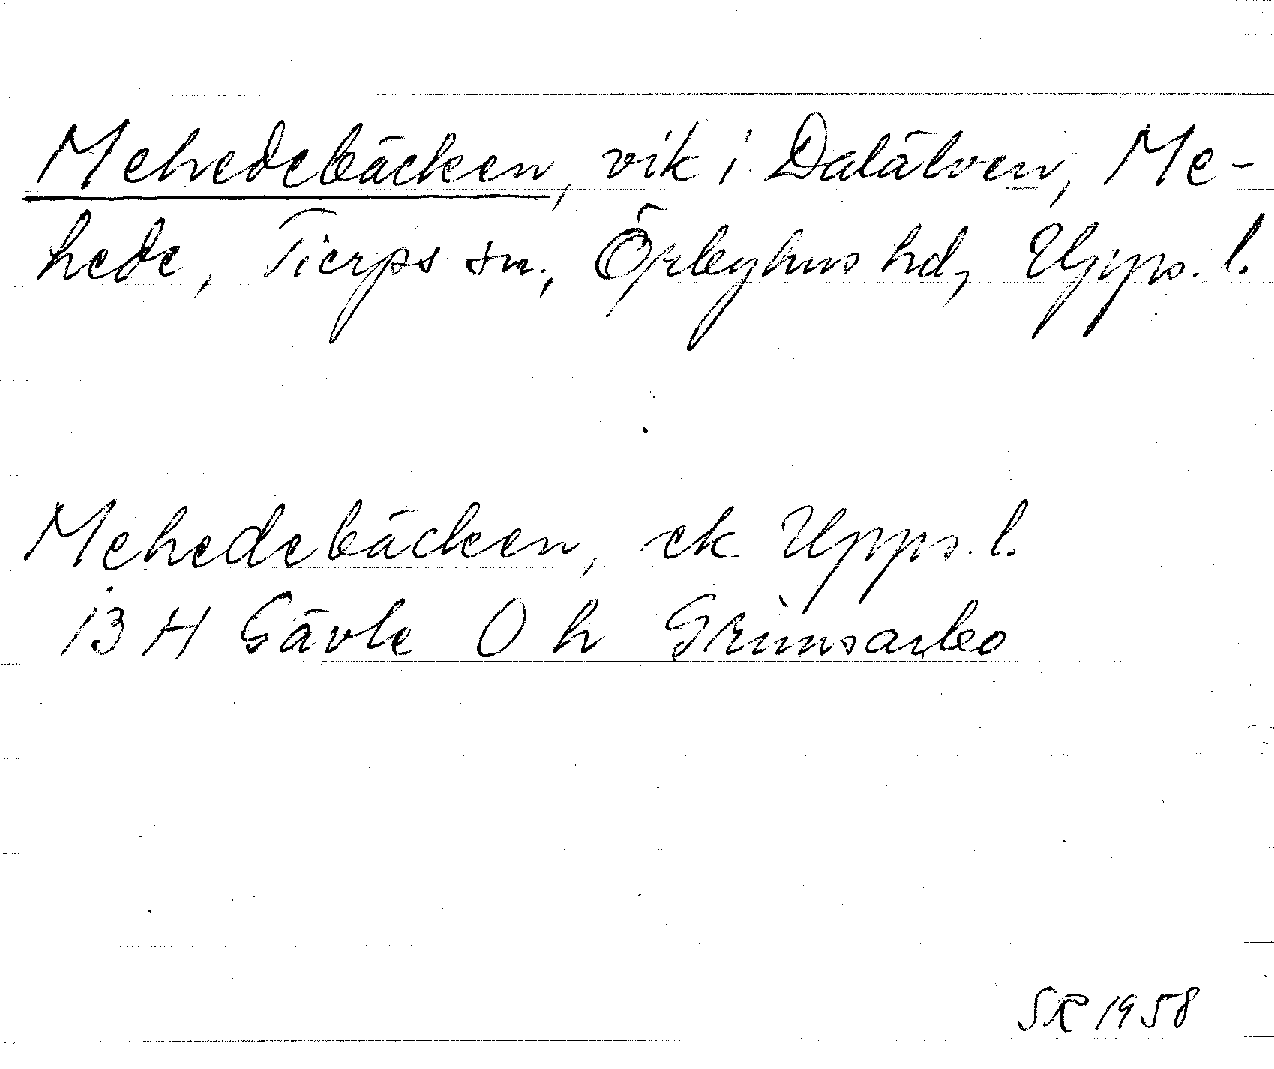 Mehedebäcken, vik i Dalälven, Me-
hede, Tierps sn., Örbyhus hd, Upps. l.
Mehedebäcken, ek Upps. l.
13 H Gävle O h Grimsarbo
SR 1958